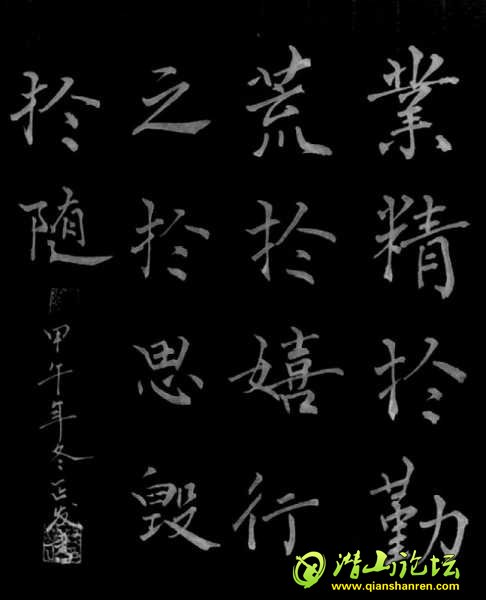 業精於勤
荒於嬉行
之於思毀
於随
甲午年冬正发书
潜山论坛
www.qianshanren.com